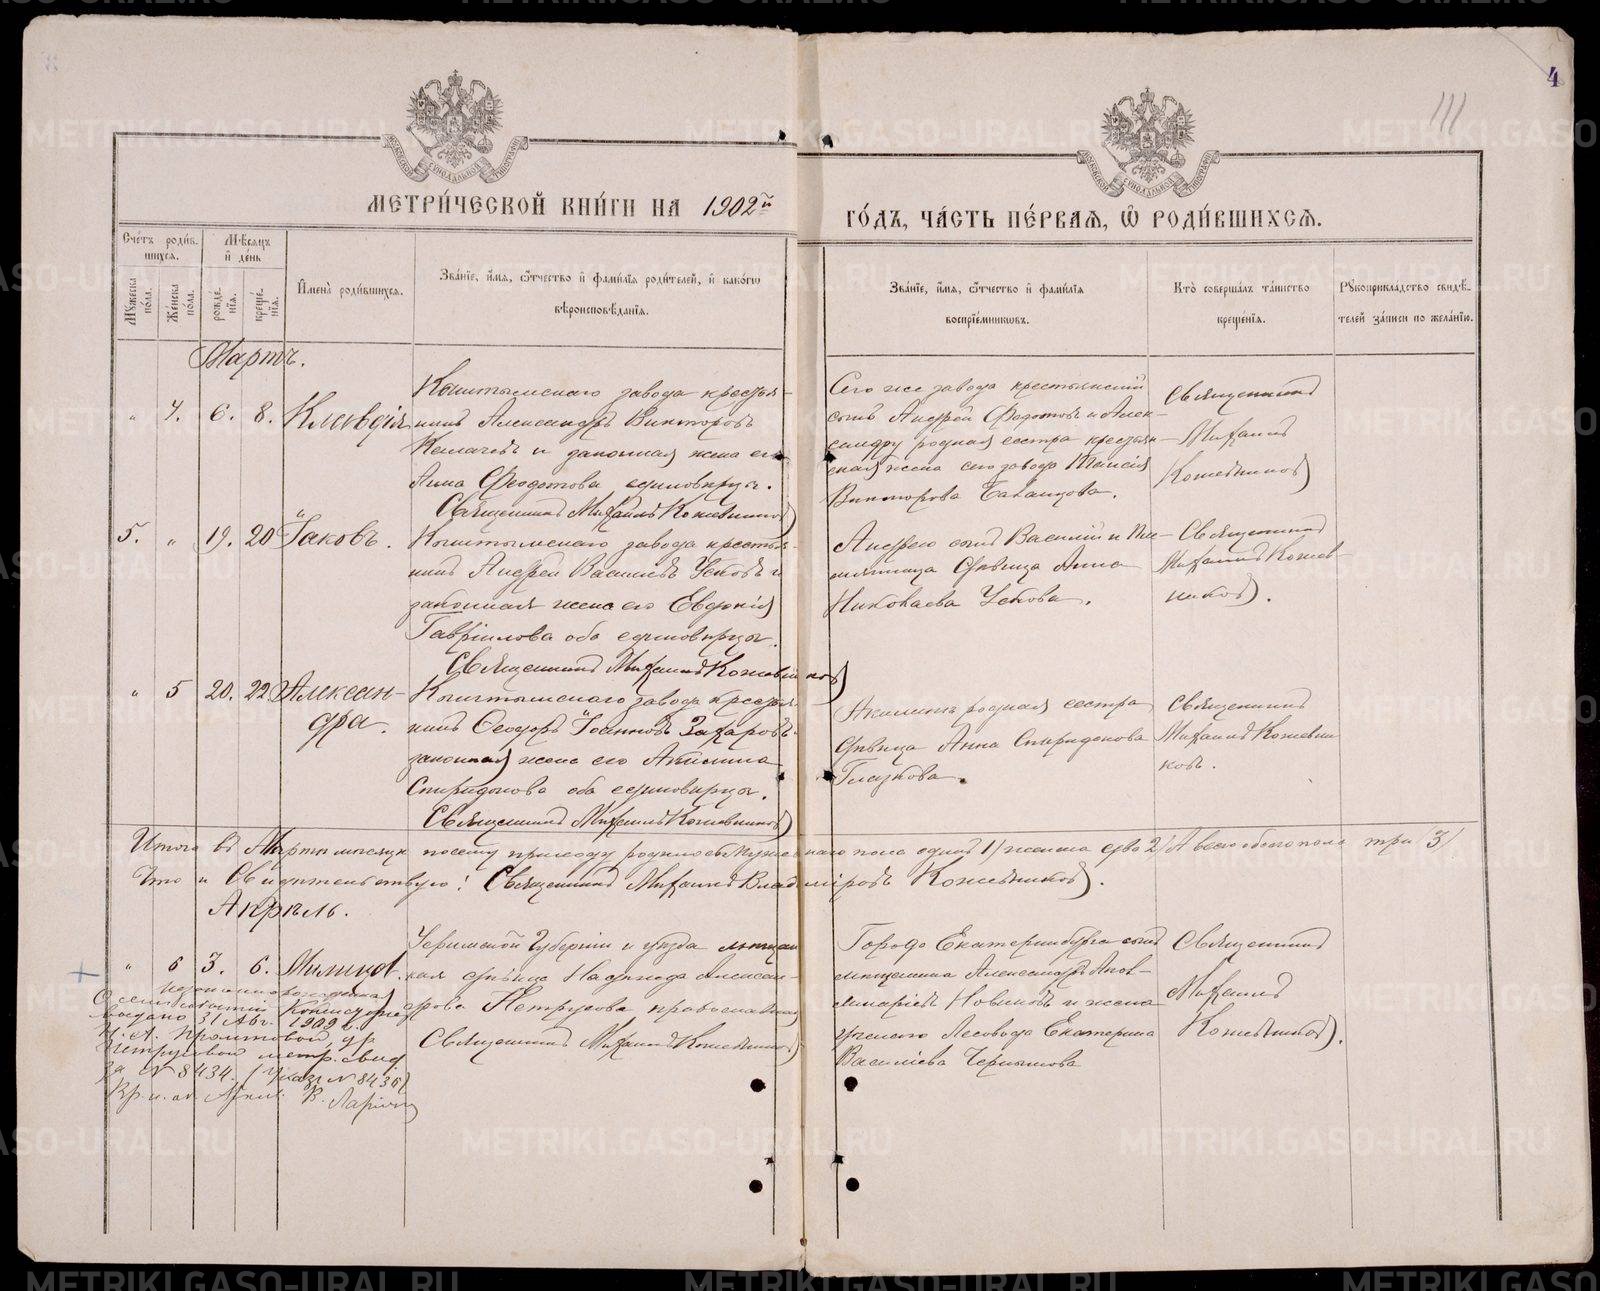 4
111
МЕТРИ́ЧЕСКОЙ КНИ́ГИ НА 1902й
ГО́ДЪ, ЧА́СТЬ ПЕ́РВАЯ, Ѿ РОДИ́ВШИХСѦ.
Сче́тъ роди́в-
шихсѧ.
Мѣ́сѧцъ
и҆ де́нь
Мꙋ́жеска
по́ла.
Же́нска
по́ла.
рожде́-
нїѧ.
креще́-
нїѧ.
И҆мена̀ роди́вшихсѧ.
Зва́нїе, и҆́мѧ, ѻ҆́тчество и҆ фами́лїѧ роди́телей, и҆ како́гѡ
вѣроисповѣ́данїѧ.
Зва́нїе, и҆́мѧ, ѻ҆́тчество и҆ фами́лїѧ
воспрїе́мникѡвъ.
Кто̀ соверша́лъ та́инство
креще́нїѧ.
Рꙋкоприкла́дство свидѣ́-
телей за́писи по жела́нїю.
Мартъ.
" 4. 6. 8. Клавдія
Кыштымскаго завода крестья-
нинъ Александръ Викторовъ
и законная жена его
Анна Феодотова единоверцы.
Священникъ Михаилъ Кожевниковъ
Сего же завода крестьянский
сынъ Андрей Федотовъ и Алек-
сандру родная сестра крестьян-
ская жена сего завода Таисія
Викторова
Священникъ
Михаилъ
Кожевниковъ
5. " 19. 20 Іаковъ.
Кыштымскаго завода крестья-
нинъ Андрей Василіевъ Усковъ и
законная жена его Евдокія
Гавріилова оба единоверцы.
Священникъ Михаилъ Кожевниковъ
Андрею сынъ Василій и пле-
мянница девица Анна
Николаева Ускова.
Священникъ
Михаилъ Кожев-
никовъ.
" 5 20. 22 Алексан-
дра.
Кыштымскаго завода крестья-
нинъ Феодоръ Іоанновъ Захаровъ
законная жена его Акилина
Спиридонова оба единоверцы.
Священникъ Михаилъ Кожевниковъ
Акилинъ родная сестра
девица Анна Спиридонова
Глазкова.
Священникъ
Михаилъ Кожевни
ковъ.
Итого въ Марте месяце по сему приходу родилось Мужескаго пола одинъ 1/ женска два 2/ А всего обоего пола три /3/
Что и Свидетельствую: Священникъ Михаилъ Владиміровъ Кожевниковъ.
Апрель.
" 6 3. 6.
Уфимской Губерніи и уезда мещан
ская девица Надежда Алексан-
дрова Петрусова православная
Священникъ Михаилъ Кожевниковъ
Города Екатеринбурга сынъ
мещанина Александръ Апол-
линаріевъ Новиковъ и жена
ученого Лесовода Екатерина
Василіева Чернышова
Священникъ
Михаилъ
Кожевниковъ.
незаконнорожденная
Консисторіей
выдано 31 Авг. 1909 г.
метр. свид
за № 8434. (Указъ № 8436)